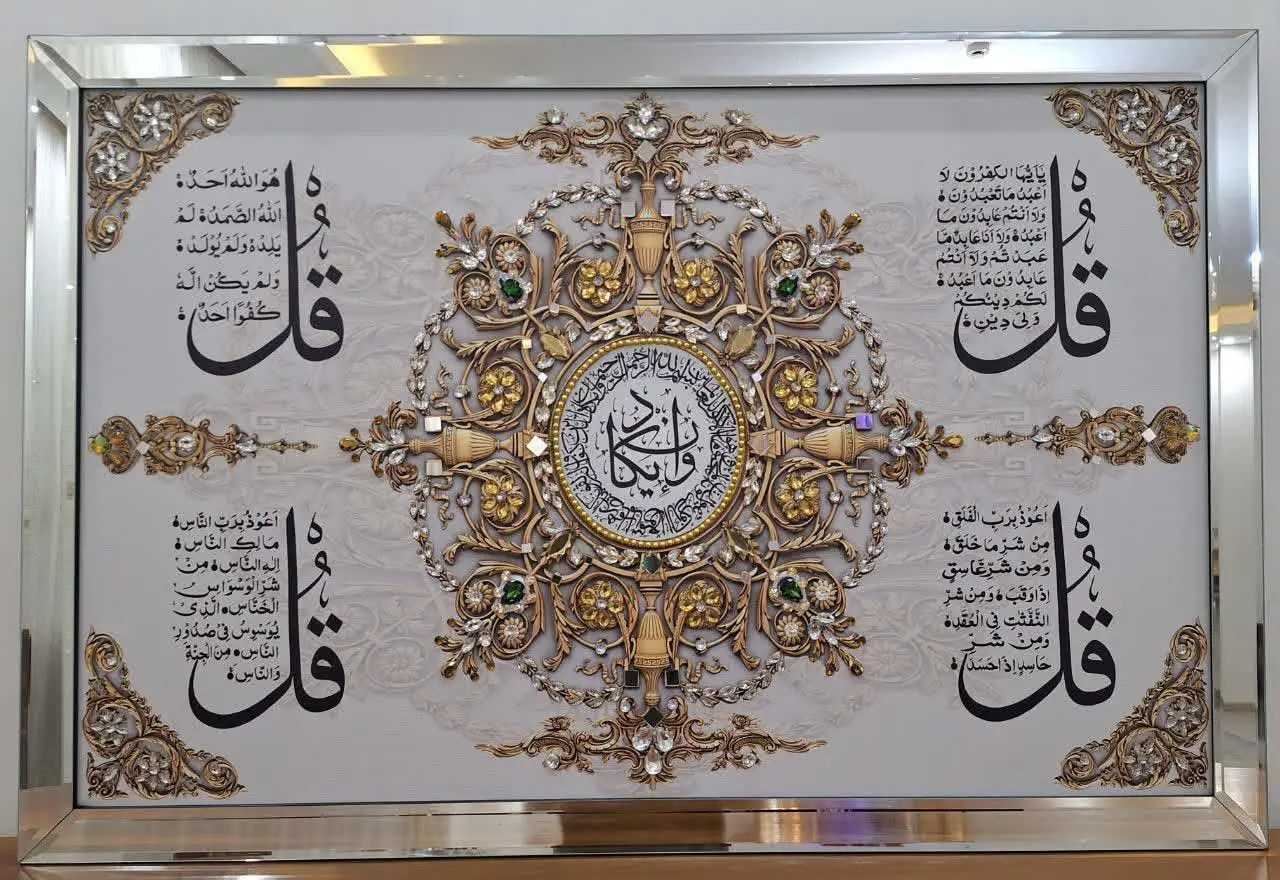 قُلْ
يَاَيُّهَا الكٰفِرُوْنَ لَا
اَعْبُدُ مَا تَعْبُدُوْنَ ۞
وَلَا اَنْتُمْ عَابِدُوْنَ مَا
اَعْبُدُ ۞ وَلَا اَنَا عَابِدٌ مَّا
عَبَدْ تُّمْ وَلَا اَنْتُمْ
عَابِدُوْنَ مَا اَعْبُدُ ۞
لَكُمْ دِيْنُكُمْ
وَلِىَ دِيْنِ ۞
قُلْ
هُوَ اللهُ اَحَدٌ ۞
اَللهُ الصَّمَدُ ۞ لَمْ
يَلِدْ ۞ وَلَمْ يُوْلَدْ ۞
وَلَمْ يَكُنْ لَهُ
كُفُوًا اَحَدٌ ۞
بسم الله الرحمن الرحيم
وَإِن يَكَادُ
قُلْ
اَعُوْذُ بِرَبِّ الْفَلَقِ ۞
مِنْ شَرِّ مَا خَلَقَ ۞
وَمِنْ شَرِّ غَاسِقٍ
اِذَا وَقَبَ ۞ وَمِنْ شَرِّ
النَّفّٰثٰتِ فِي الْعُقَدِ ۞
وَمِنْ شَرِّ
حَاسِدٍ اِذَا حَسَدَ ۞
قُلْ
اَعُوْذُ بِرَبِّ النَّاسِ ۞
مَالِكِ النَّاسِ ۞
اِلٰهِ النَّاسِ ۞ مِنْ
شَرِّ الْوَسْوَاسِ
الْخَنَّاسِ ۞ الَّذِى
يُوَسْوِسُ فِىْ صُدُوْرِ
النَّاسِ ۞ مِنَ الْجِنَّةِ
وَالنَّاسِ ۞